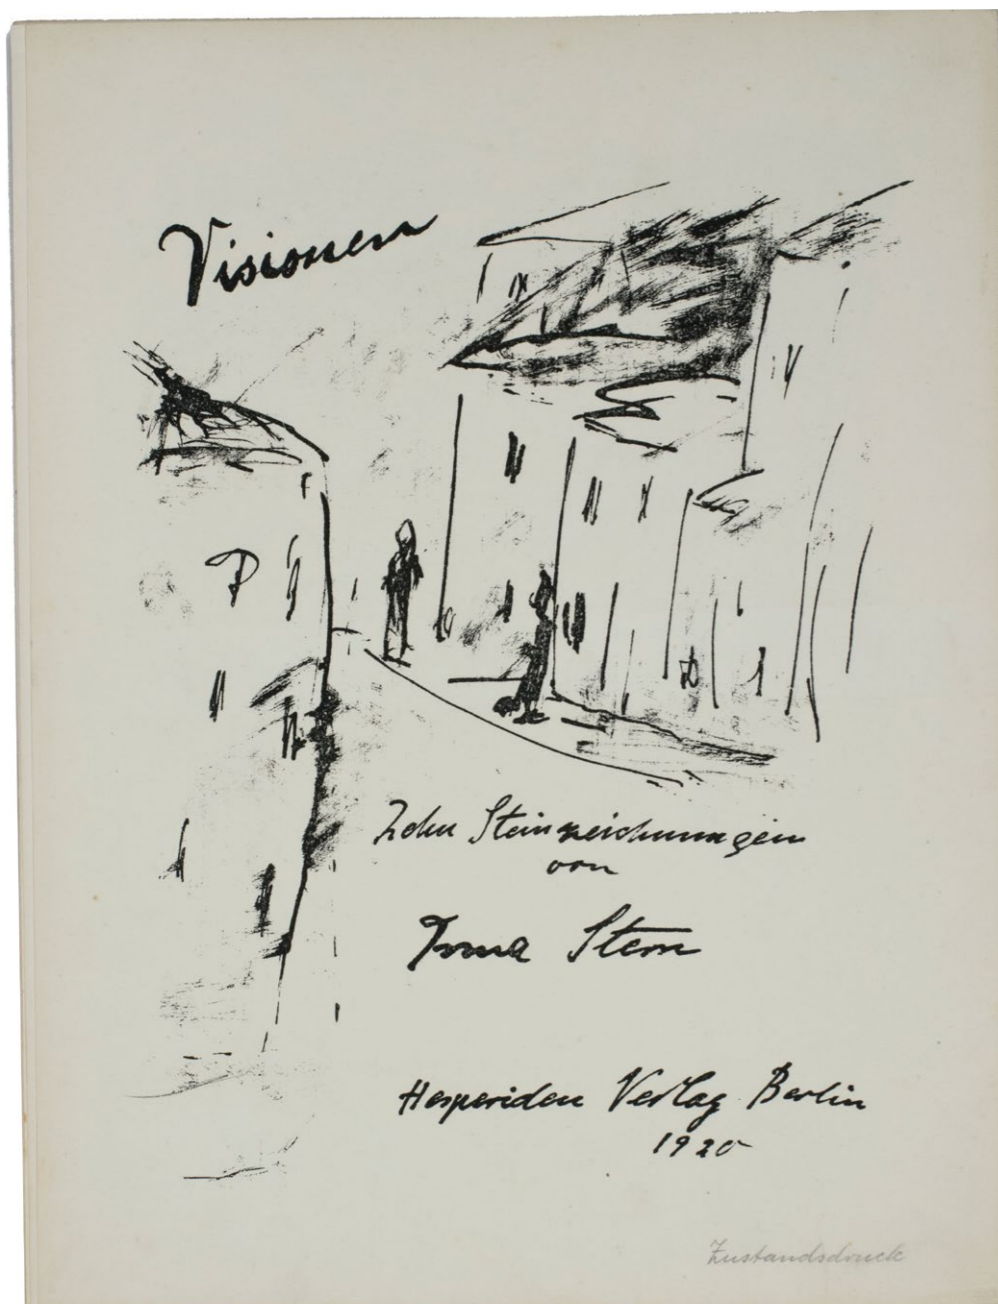 Visionen
Zehn Steinzeichnungen
von
Irma Stern
Hesperiden Verlag Berlin
1920
Zustandsdruck